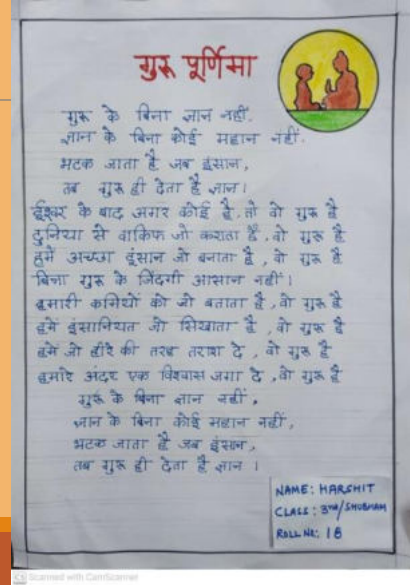 गुरू पूर्णिमा
गुरू के बिना ज्ञान नहीं,
ज्ञान के बिना कोई महान नहीं.
भटक जाता है जब इंसान,
तब गुरू ही देता है ज्ञान।
ईश्वर के बाद अगर कोई है, तो वो गुरू है
दुनिया से वाकिफ जो कराता है, वो गुरू है
हमें अच्छा इंसान जो बनाता है, वो गुरू है
बिना गुरू के जिंदगी आसान नहीं।
हमारी कमियों को जो बताता है, वो गुरू है
हमें इंसानियत जो सिखाता है, वो गुरू है
हमें जो हीरे की तरह तराश दे, वो गुरू है
हमारे अंदर एक विश्वास जगा दे, वो गुरू है
गुरू के बिना ज्ञान नहीं,
ज्ञान के बिना कोई महान नहीं,
भटक जाता है जब इंसान,
तब गुरू ही देता है ज्ञान।
NAME: HARSHIT
CLASS: 3rd/SHUBHAM
ROLL NO: 18
CS Scanned with CamScanner